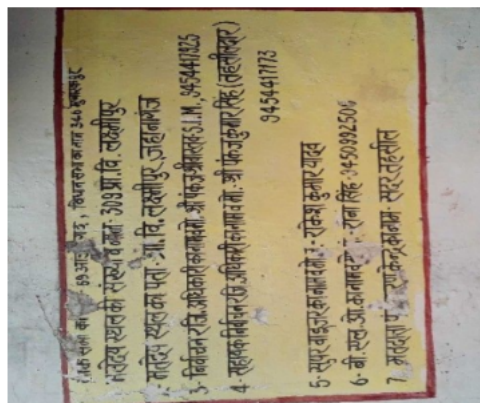 69 आजमगढ़, विधान सभा का नाम 346 मुबारकपुर
मतदेय स्थल की संख्या व नाम: 309 प्रा. वि. लक्ष्मीपुर
मतदेय स्थल का पता: प्रा. वि. लक्ष्मीपुर, जहानागंज
3- निर्वाचन रजि. अधिकारी का नाम व मो. श्री पंकज श्रीवास्तव S.D.M., 9454417925
4- सहायक निर्वाचन रजि. अधिकारी का नाम व मो: श्री पंकज कुमार सिंह (तहसीलदार)
9454417173
5- सुपरवाइजर का नाम व मो. :- राकेश कुमार यादव
6- बी. एल. ओ. का नाम व राना सिंह :- 9450992506
7. मतदाता केन्द्र का नाम: सदर तहसील